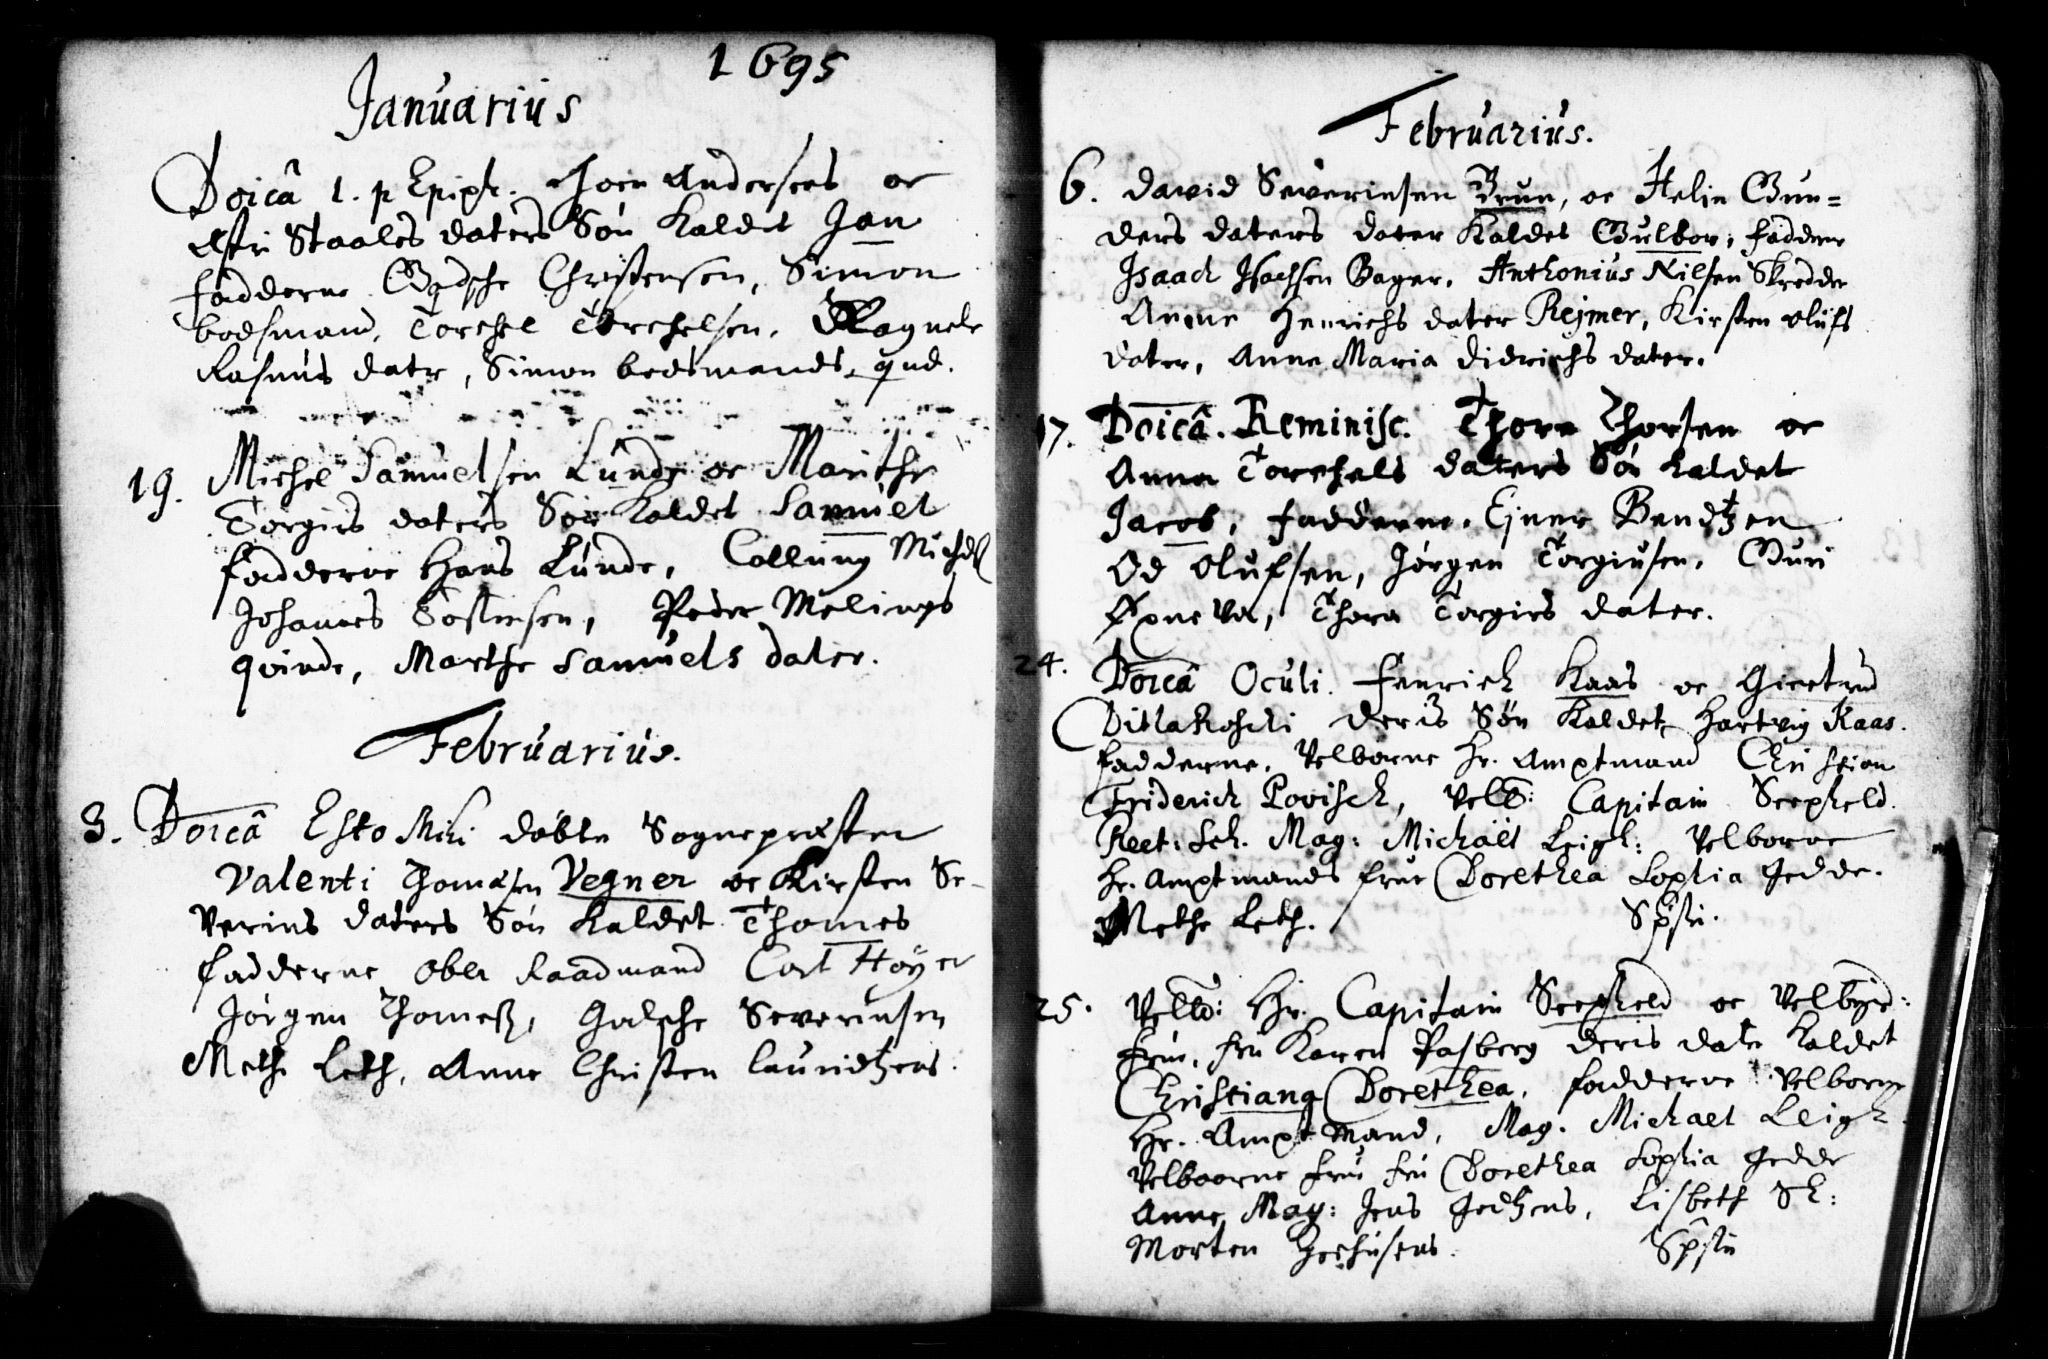 1695
Januarius
Doicâ 1. p Epiph. Thoer Andersens oc
Astri Staales daters Søn kaldet Jan
fadderne Gødsche Christensen, Simon
bodsmand, Torchel Torchelsen, Ragnele
Rasmus datr, Simon bodsmands qnd.
19. Michel Samuelsen Lunde oc Marithe
Torgirs daters Søn kaldet Samuel
fadderne Hans Lunde, Collung Michels
Johannes Tostensen, Peder Melings
qvinde, Marthe Samuels dater.
Februarius.
3. Doicâ Esto Mihi døbte Sognepræsten
Valenti Thomæsen Vegner oc Kirsten Se-
verins daters Søn kaldet Thomes
fadderne Ober Raadmand Cort Høyer
Jørgen Thomeß, Godsche Severinsen
Methe Leth, Anne Christen Lauridtzens.
Februarius.
6. David Severinsen Brun, oc Helie Gun=
ders daters dater kaldet Gulbor, faddere
Isaach Isachsen Bager, Anthonius Nilsen Skredder
Anne Henrichs dater Rejmer, Kirsten Olufs
dater, Anne Maria Didrichs dater.
17. Doicâ. Reminisc. Thore Thorsen oc
Anna Torchels daters Søn kaldet
Jacob, fadderne, Ejner Bendtzen
Od Olufsen, Jørgen Torgiusen, Guri
Thora Torgirs dater.
24. Doicâ Oculi. Fenrich Kaas oc Giertrud
deris Søn kaldet Hartvig Kaas.
fadderne, Velborne Hr. Amptmand Christian
Friderich Povisch, Velb: Capitain Seepheld
Rect: Sch. Mag: Michäel Leigh: Velborne
Hr. Amptmands frue Dorethea Sophia Gedde.
Methe Leth. Spsu.
25. Velb: Hr. Capitain Seepheld oc Velbyrd:
frue, fru Karen Pasberg deris dater kaldet
Christiana Dorethea, fadderne Velborne
Hr. Amptmand, Mag. Michael Leigh
Velboorne frue fru Dorethea Sophia Gedde
Anne Mag: Jens Gedtzens, Lisbeth Sl:
Morten Seehusens. Spsu